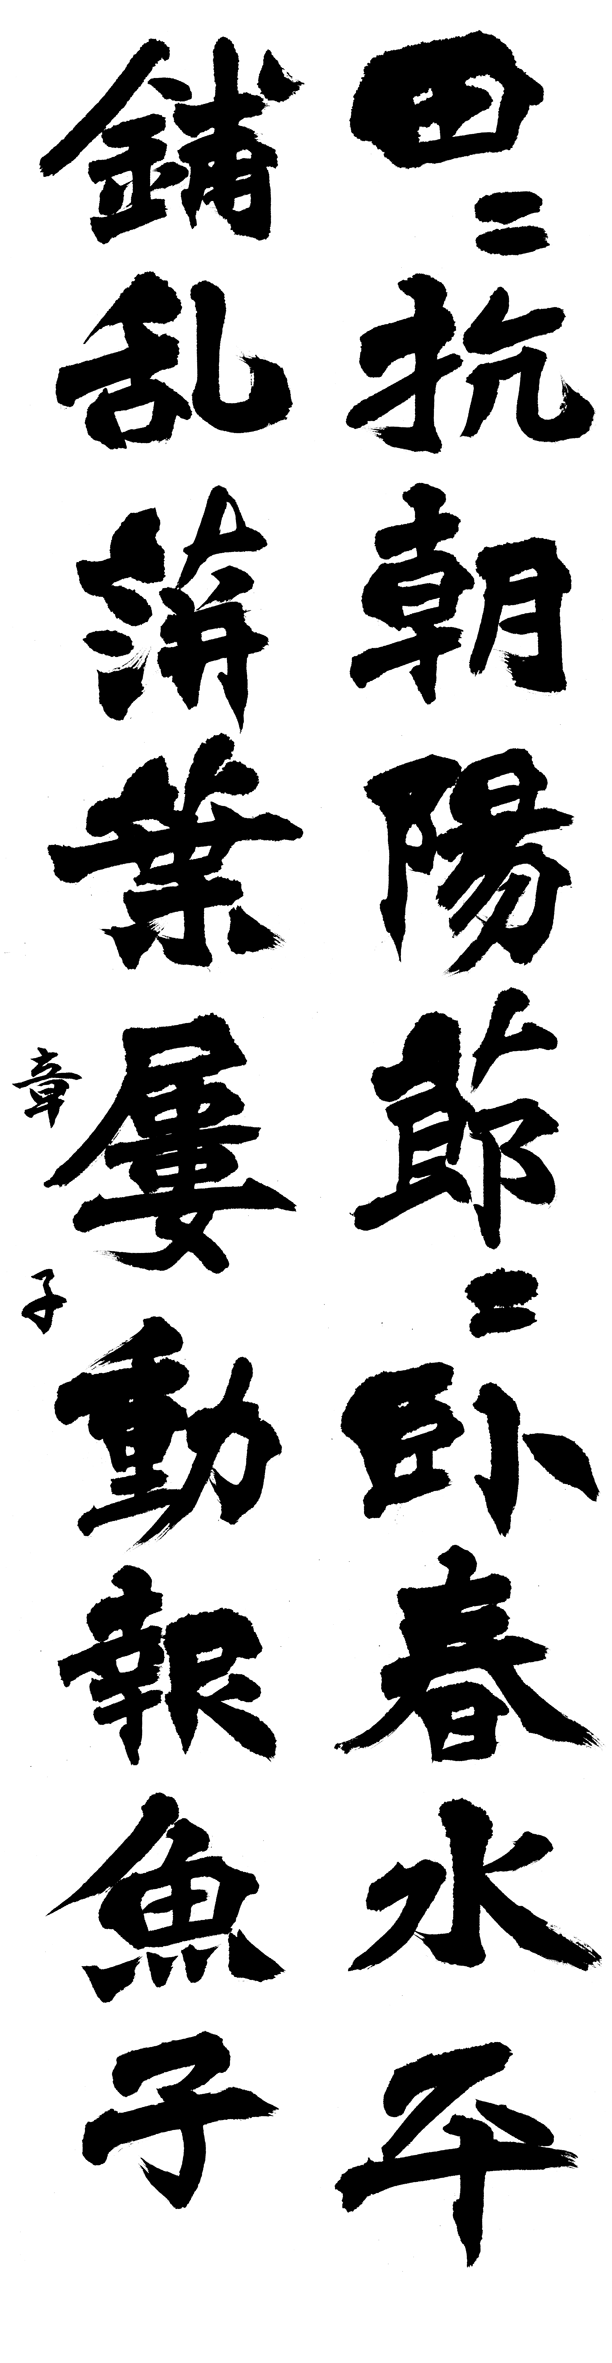 田〻抗朝陽節〻卧春水平
鋪乱萍葉屢動報魚子
章子